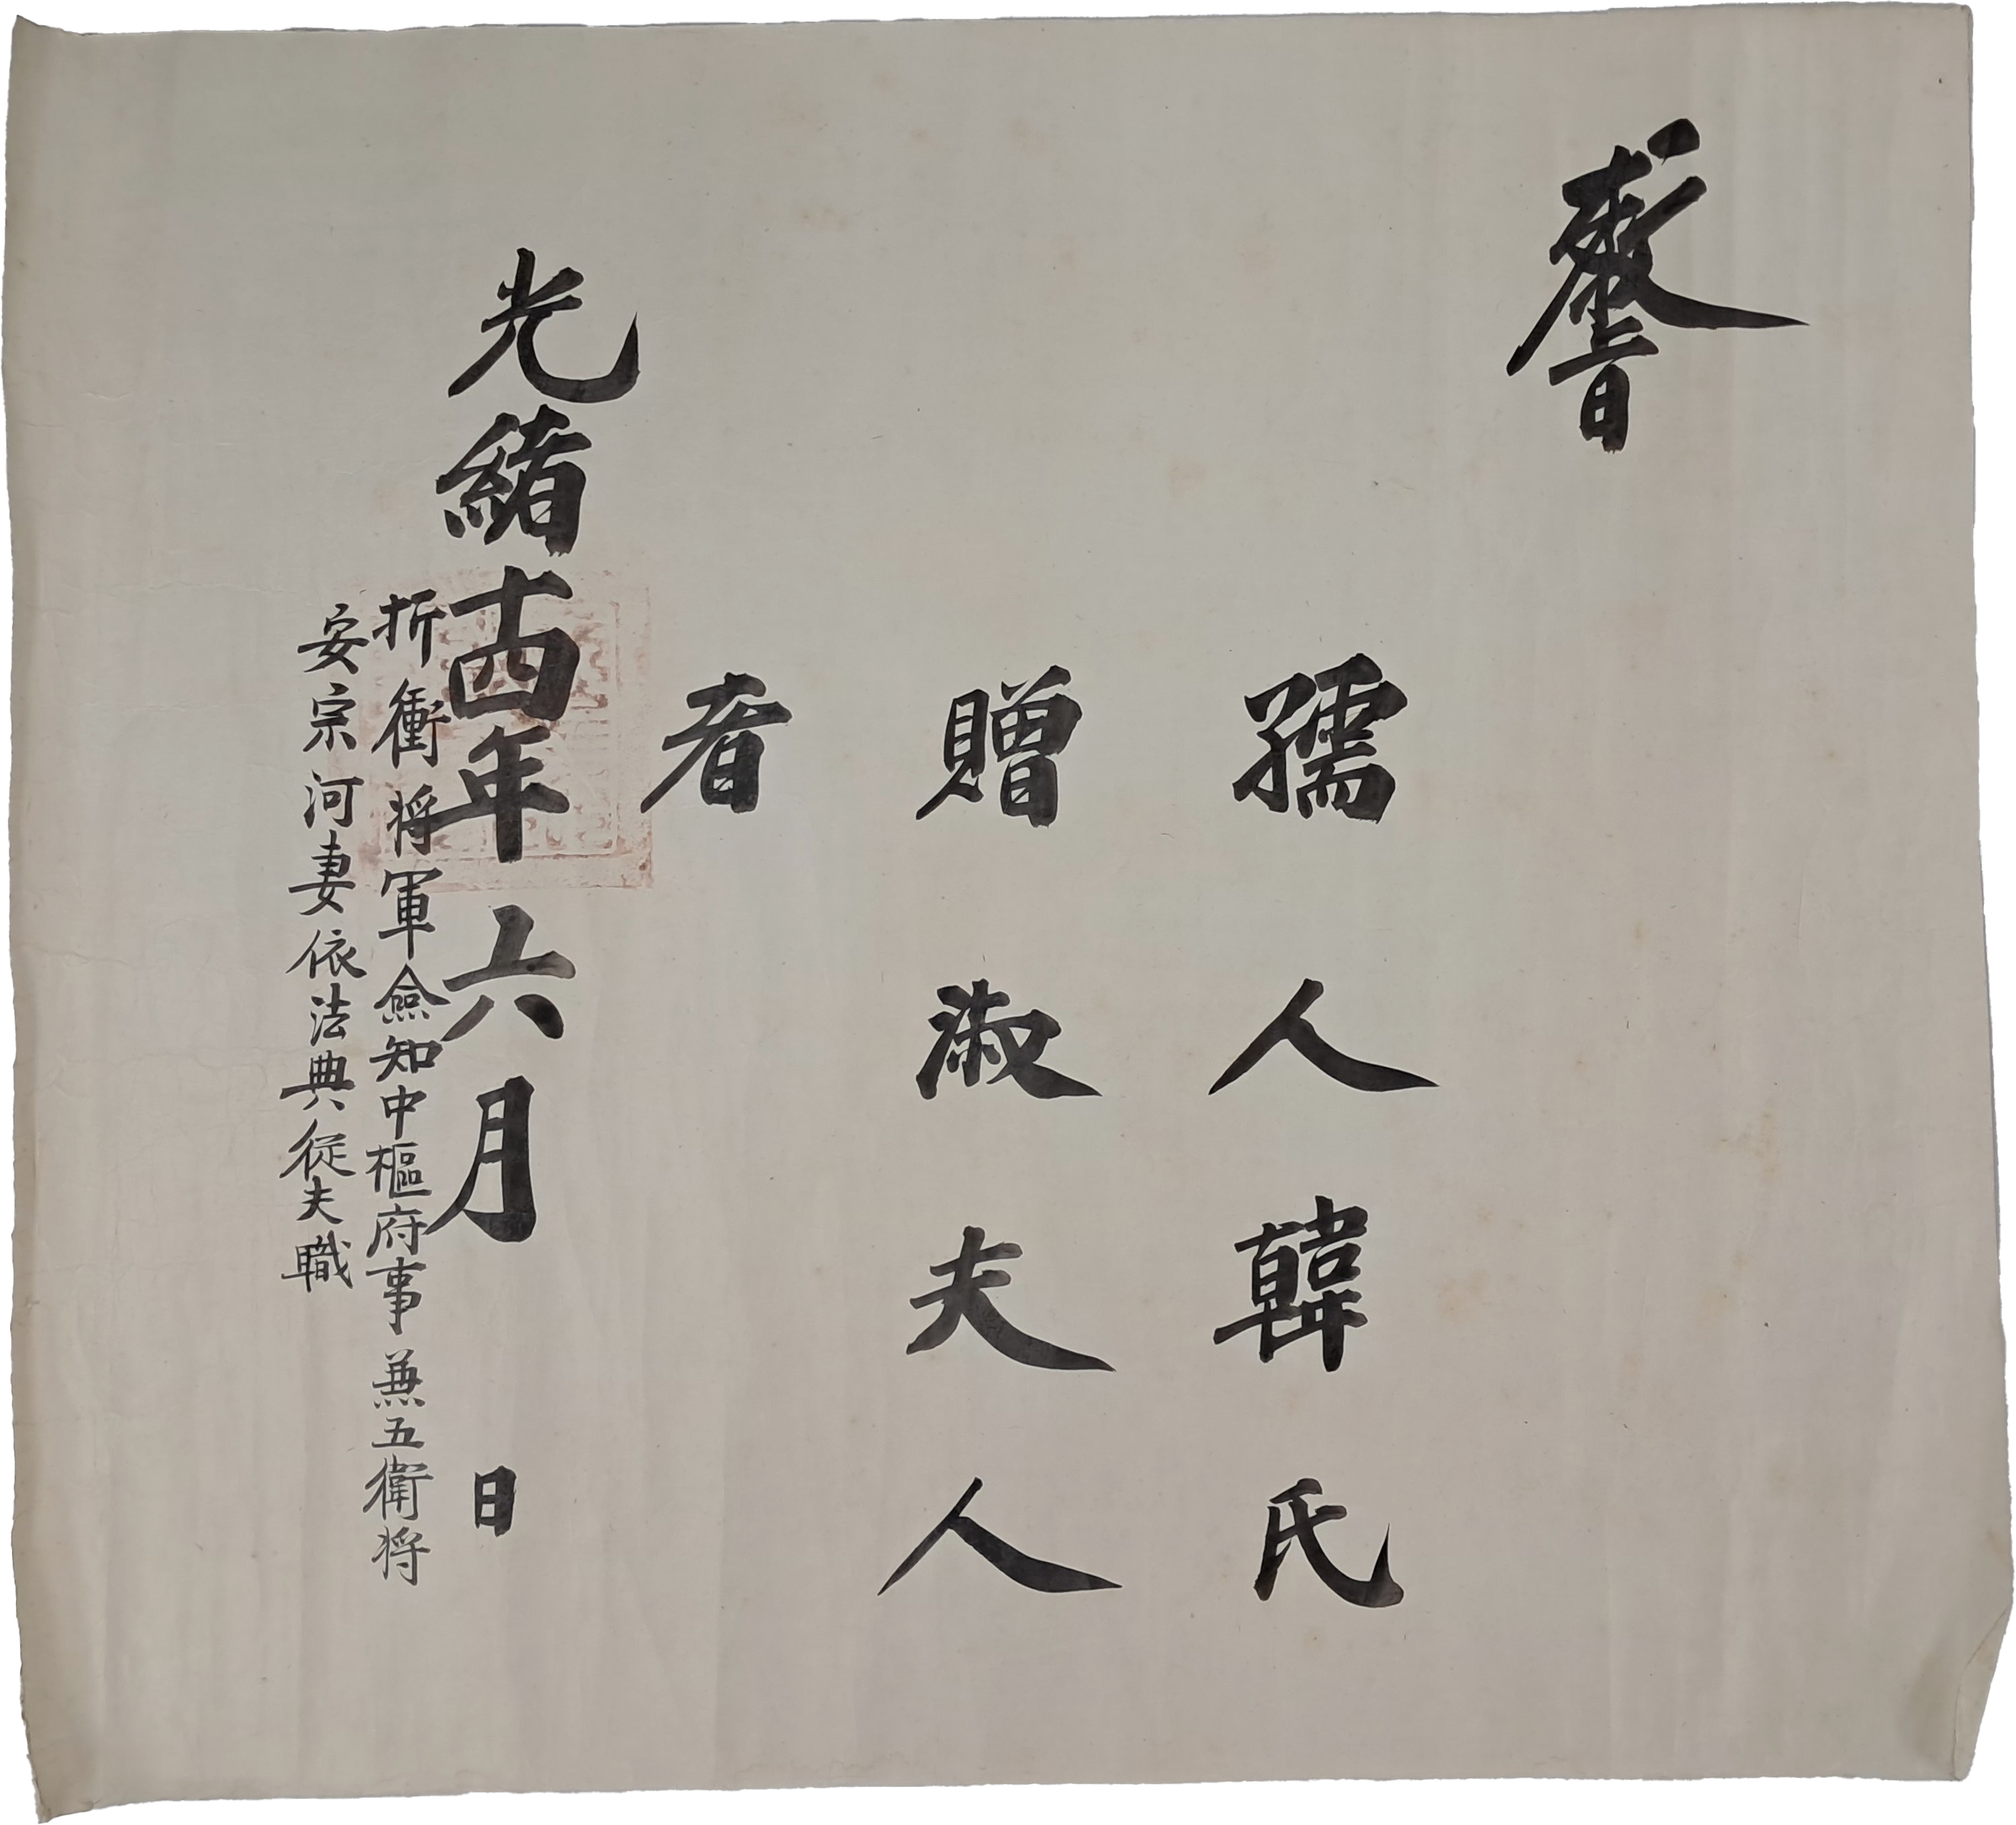 敎旨
孺人韓氏
贈淑夫人
者
光緖十四年六月 日
折衝将軍僉知中樞府事兼五衛将
安宗河妻依法典從夫職